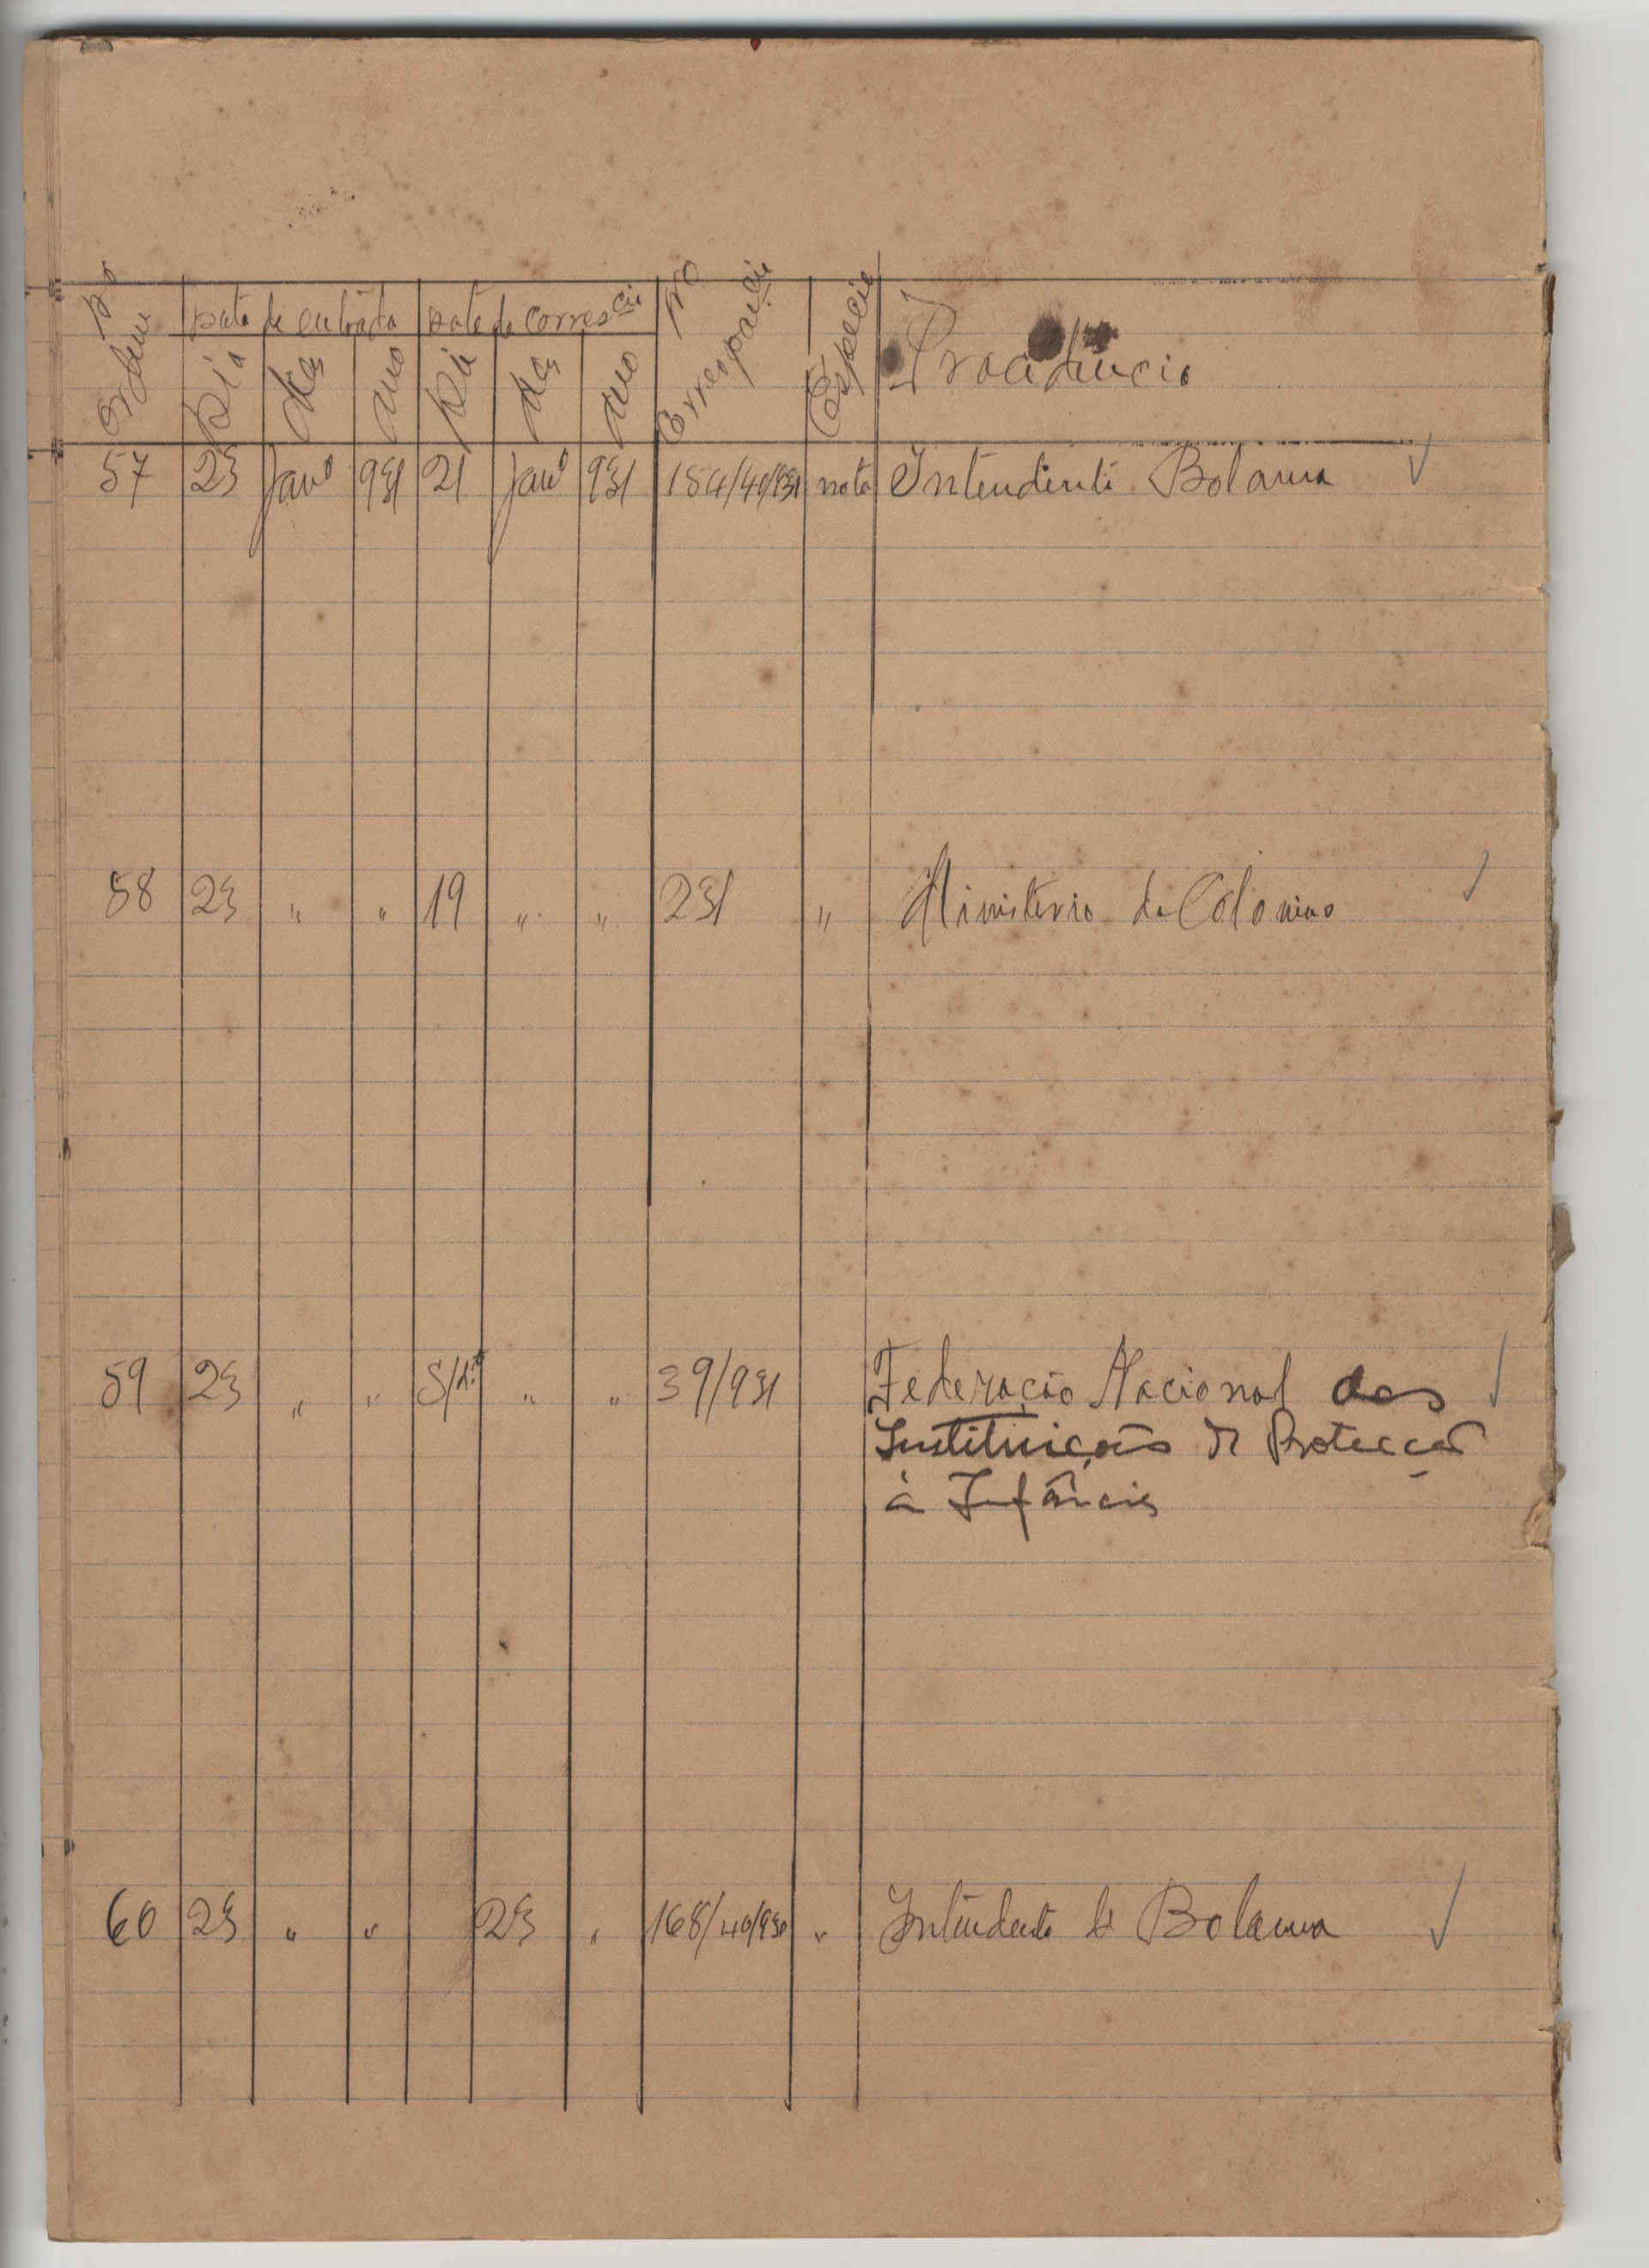 Nº Ordem | Data de entrada | Data de corres.cia | Nº Correspon.cia | Especie | Procedencia
Dia | Mês | Ano | Dia | Mês | Ano
57 | 23 | Janº | 931 | 21 | Janº | 931 | 154/40/931 | nota | Intendente Bolama ✓
58 | 23 | " | " | 19 | " | " | 231 | " | Ministerio da Colonias ✓
59 | 23 | " | " | S/d.ta | " | " | 39/931 | Federação Nacional das ✓
Instituições de Protecção
à Infância
60 | 23 | " | " | 23 | " | 168/40/930 | " | Intendente de Bolama ✓